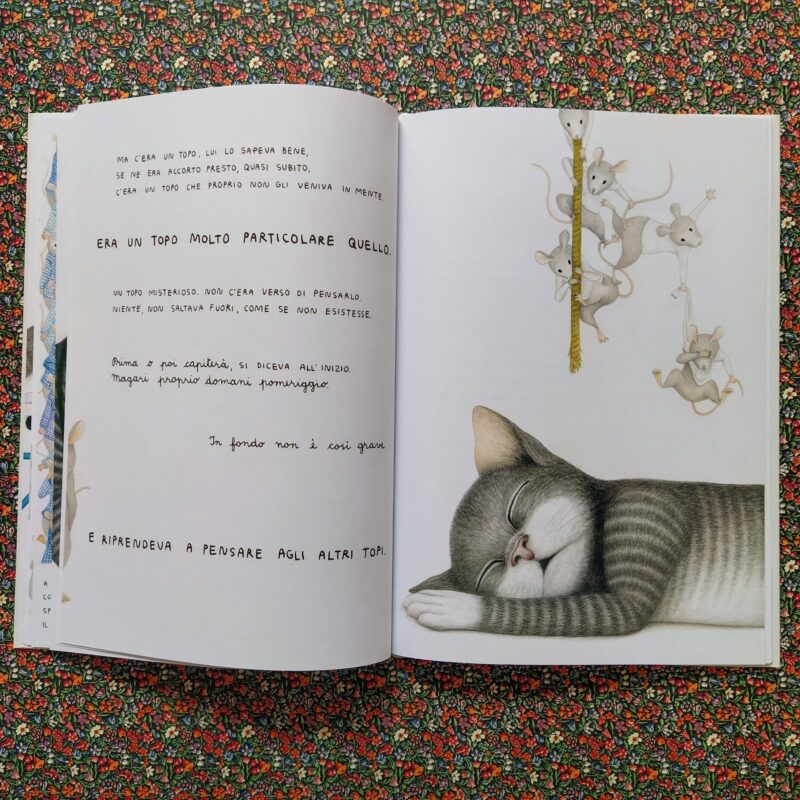 MA C'ERA UN TOPO, LUI LO SAPEVA BENE,
SE NE ERA ACCORTO PRESTO, QUASI SUBITO,
C'ERA UN TOPO CHE PROPRIO NON GLI VENIVA IN MENTE.
ERA UN TOPO MOLTO PARTICOLARE QUELLO.
UN TOPO MISTERIOSO. NON C'ERA VERSO DI PENSARLO,
NIENTE, NON SALTAVA FUORI, COME SE NON ESISTESSE.
Prima o poi capiterà, SI DICEVA ALL'INIZIO.
Magari proprio domani pomeriggio.
In fondo non è così grave
E RIPRENDEVA A PENSARE AGLI ALTRI TOPI.
A
CO
SP
IL